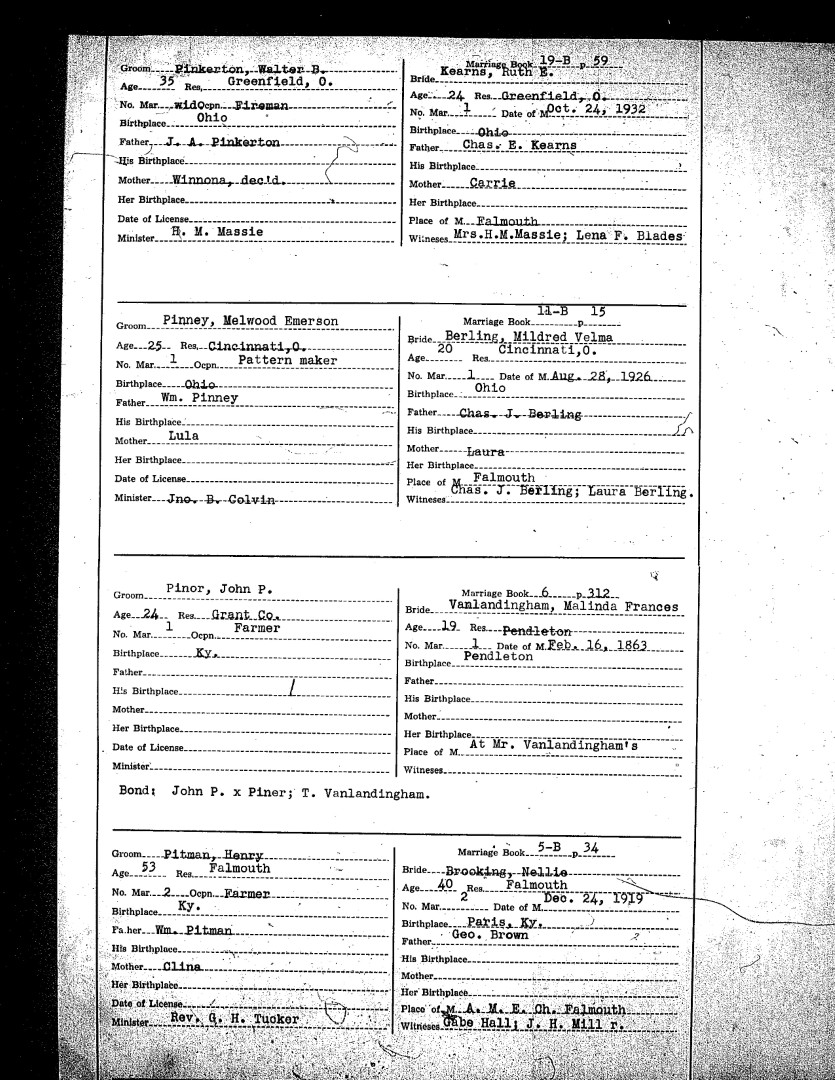 Groom Pinkerton, Walter B.
Age 35 Res. Greenfield, O.
No. Mar. wid Ocpn. Fireman
Birthplace Ohio
Father J. A. Pinkerton
His Birthplace
Mother Winnona, dec'd.
Her Birthplace
Date of License
Minister H. M. Massie
Marriage Book 19-B p 59
Bride Kearns, Ruth E.
Age 24 Res. Greenfield, O.
No. Mar. 1 Date of M. Oct. 24, 1932
Birthplace Ohio
Father Chas. E. Kearns
His Birthplace
Mother Carrie
Her Birthplace
Place of M. Falmouth
Witneses Mrs.H.M.Massie; Lena F. Blades
Groom Pinney, Melwood Emerson
Age 25 Res. Cincinnati,O.
No. Mar. 1 Ocpn. Pattern maker
Birthplace Ohio
Father Wm. Pinney
His Birthplace
Mother Lula
Her Birthplace
Date of License
Minister Jno. B. Colvin
Marriage Book 11-B p 15
Bride Berling, Mildred Velma
Age 20 Res. Cincinnati,O.
No. Mar. 1 Date of M. Aug. 28, 1926
Birthplace Ohio
Father Chas. J. Berling
His Birthplace
Mother Laura
Her Birthplace
Place of M. Falmouth
Witneses Chas. J. Berling; Laura Berling.
Groom Pinor, John P.
Age 24 Res. Grant Co.
No. Mar. 1 Ocpn. Farmer
Birthplace Ky.
Father
His Birthplace
Mother
Her Birthplace
Date of License
Minister
Marriage Book 6 p 312
Bride Vanlandingham, Malinda Frances
Age 19 Res. Pendleton
No. Mar. 1 Date of M. Feb. 16, 1863
Birthplace Pendleton
Father
His Birthplace
Mother
Her Birthplace
Place of M. At Mr. Vanlandingham's
Witneses
Bond: John P. x Piner; T. Vanlandingham.
Groom Pitman, Henry
Age 53 Res. Falmouth
No. Mar. 2 Ocpn. Farmer
Birthplace Ky.
Father Wm. Pitman
His Birthplace
Mother Clina
Her Birthplace
Date of License
Minister Rev. G. H. Tucker
Marriage Book 5-B p 34
Bride Brooking, Nellie
Age 40 Res. Falmouth
No. Mar. 2 Date of M. Dec. 24, 1919
Birthplace Paris, Ky.
Father Geo. Brown
His Birthplace
Mother
Her Birthplace
Place of M. A. M. E. Ch. Falmouth
Witneses Gabe Hall; J. H. Mill r.